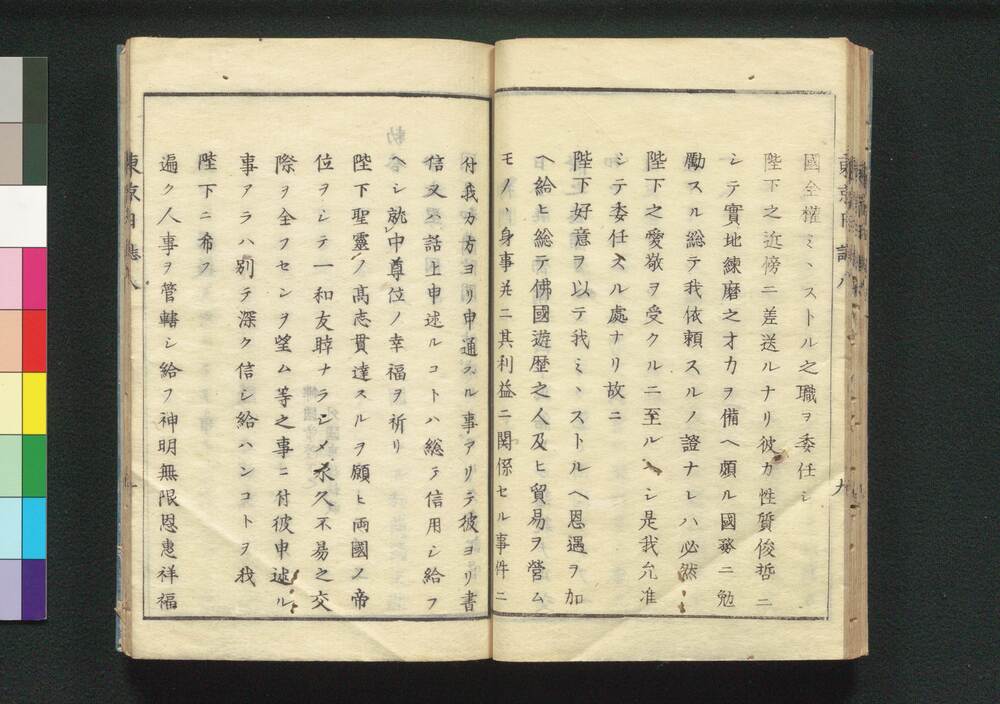 國全權ミヽストル之職ヲ委任シ
陛下之近傍ニ差送ルナリ彼カ性質俊哲ニ
シテ實地練磨之才力ヲ備ヘ頗ル國務ニ勉
勵スル総テ我依頼スルノ證ナレハ必然
陛下之愛敬ヲ受クルニ至ルヘシ是我允准
シテ委任スル處ナリ故ニ
陛下好意ヲ以テ我ミヽストルヘ恩遇ヲ加
ヘ給ヒ総テ佛國遊歴之人及ヒ貿易ヲ營ム
モノヽ身事并ニ其利益ニ関係セル事件ニ
付我カ方ヨリ申通スル事アリテ彼ヨリ書
信又ハ話上申述ルコトハ総テ信用シ給フ
ヘシ就中尊位ノ幸福ヲ祈リ
陛下聖靈ノ髙志貫達スルヲ願ヒ両國ノ帝
位ヲシテ一和友睦ナラシメ永久不易之交
際ヲ全フセンヲ望ム等之事ニ付彼申述ル
事アラハ別テ深ク信シ給ハンコトヲ我
陛下ニ希フ
遍ク人事ヲ管轄シ給フ神明無限恩惠祥福
東京日誌八
九
東京日誌八